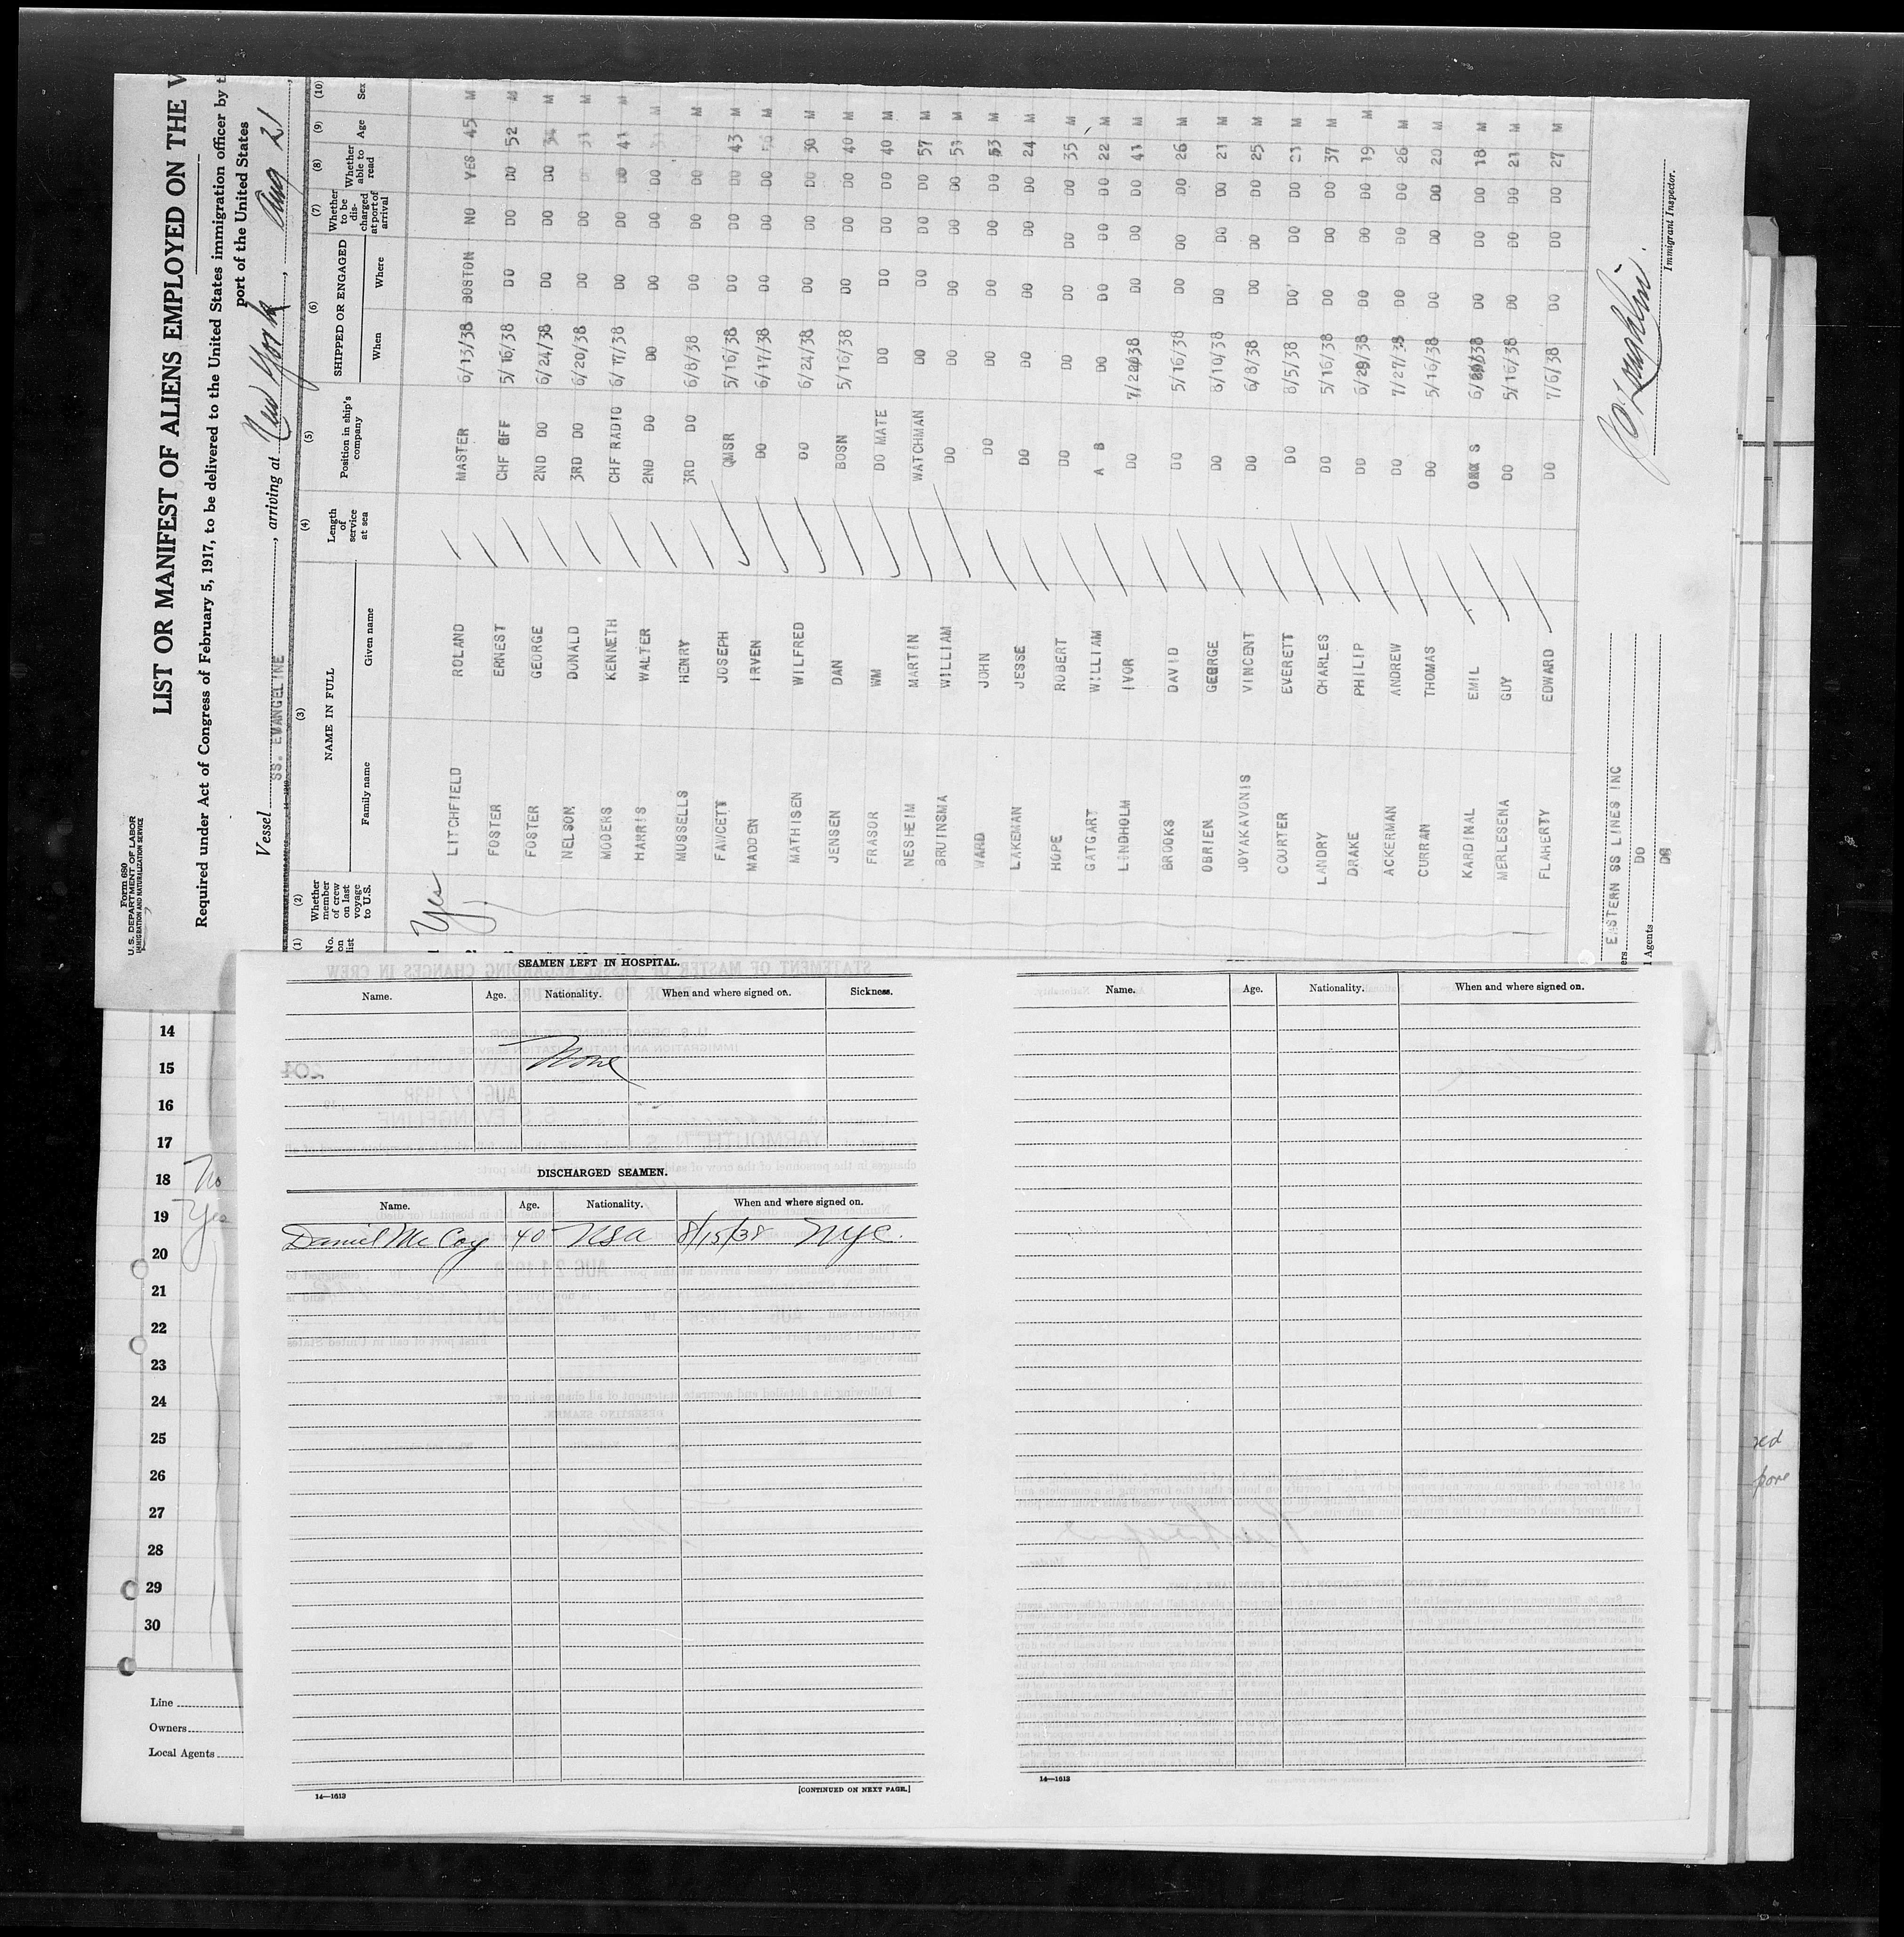 Form 680
U. S. DEPARTMENT OF LABOR
IMMIGRATION AND NATURALIZATION SERVICE
LIST OR MANIFEST OF ALIENS EMPLOYED ON THE V
Required under Act of Congress of February 5, 1917, to be delivered to the United States immigration officer by t
port of the United States
Vessel SS. EVANGELINE, arriving at New York, Aug 21
(1) (2) (3) (4) (5) (6) (7) (8) (9) (10)
No. on list
Whether member of crew on last voyage to U.S.
NAME IN FULL
Family name Given name
Length of service at sea
Position in ship's company
SHIPPED OR ENGAGED
When Where
Whether to be discharged at port of arrival
Whether able to read
Age
Sex
Yes
LITCHFIELD ROLAND MASTER 6/13/38 BOSTON NO YES 45 M
FOSTER ERNEST CHF OFF 5/16/38 DO DO DO 52 M
FOSTER GEORGE 2ND DO 6/24/38 DO DO DO M
NELSON DONALD 3RD DO 6/20/38 DO DO DO M
MODERS KENNETH CHF RADIO 6/17/38 DO DO DO 41 M
HARRIS WALTER 2ND DO DO DO DO DO M
MUSSELLS HENRY 3RD DO 6/8/38 DO DO DO M
FAWCETT JOSEPH QMSR 5/16/38 DO DO DO 43 M
MADDEN IRVEN DO 6/17/38 DO DO DO M
MATHISEN WILFRED DO 6/24/38 DO DO DO 30 M
JENSEN DAN BOSN 5/16/38 DO DO DO 40 M
FRASOR WM DO MATE DO DO DO DO 40 M
NESHEIM MARTIN WATCHMAN DO DO DO DO 57 M
BRUINSMA WILLIAM DO DO DO DO DO M
WARD JOHN DO DO DO DO DO 53 M
LAKEMAN JESSE DO DO DO DO DO 24 M
HOPE ROBERT DO DO DO DO DO 35 M
GATGART WILLIAM A B DO DO DO DO 22 M
LINDHOLM IVOR DO DO DO DO 41 M
BROOKS DAVID DO 5/16/38 DO DO DO 26 M
OBRIEN GEORGE DO 8/10/38 DO DO DO 21 M
JOYAKAVONIS VINCENT DO 6/8/38 DO DO DO 25 M
COURTER EVERETT DO 8/5/38 DO DO DO M
LANDRY CHARLES DO 5/16/38 DO DO DO 37 M
DRAKE PHILIP DO 6/29/38 DO DO DO 19 M
ACKERMAN ANDREW DO 7/27/38 DO DO DO 26 M
CURRAN THOMAS DO 5/16/38 DO DO DO 20 M
KARDINAL EMIL S DO DO DO 18 M
MERLESENA GUY DO 5/16/38 DO DO DO 21 M
FLAHERTY EDWARD DO 7/6/38 DO DO DO 27 M
EASTERN SS LINES INC
ers DO
l Agents DO
Immigrant Inspector.
SEAMEN LEFT IN HOSPITAL.
Name. Age. Nationality. When and where signed on. Sickness.
None
DISCHARGED SEAMEN.
Name. Age. Nationality. When and where signed on.
Daniel McCoy 40 USA 8/15/38 NYC.
14—1613
[CONTINUED ON NEXT PAGE.]
Name. Age. Nationality. When and where signed on.
14—1613
14
15
16
17
18 No
19 Yes
20
21
22
23
24
25
26
27
28
29
30
Line
Owners
Local Agents